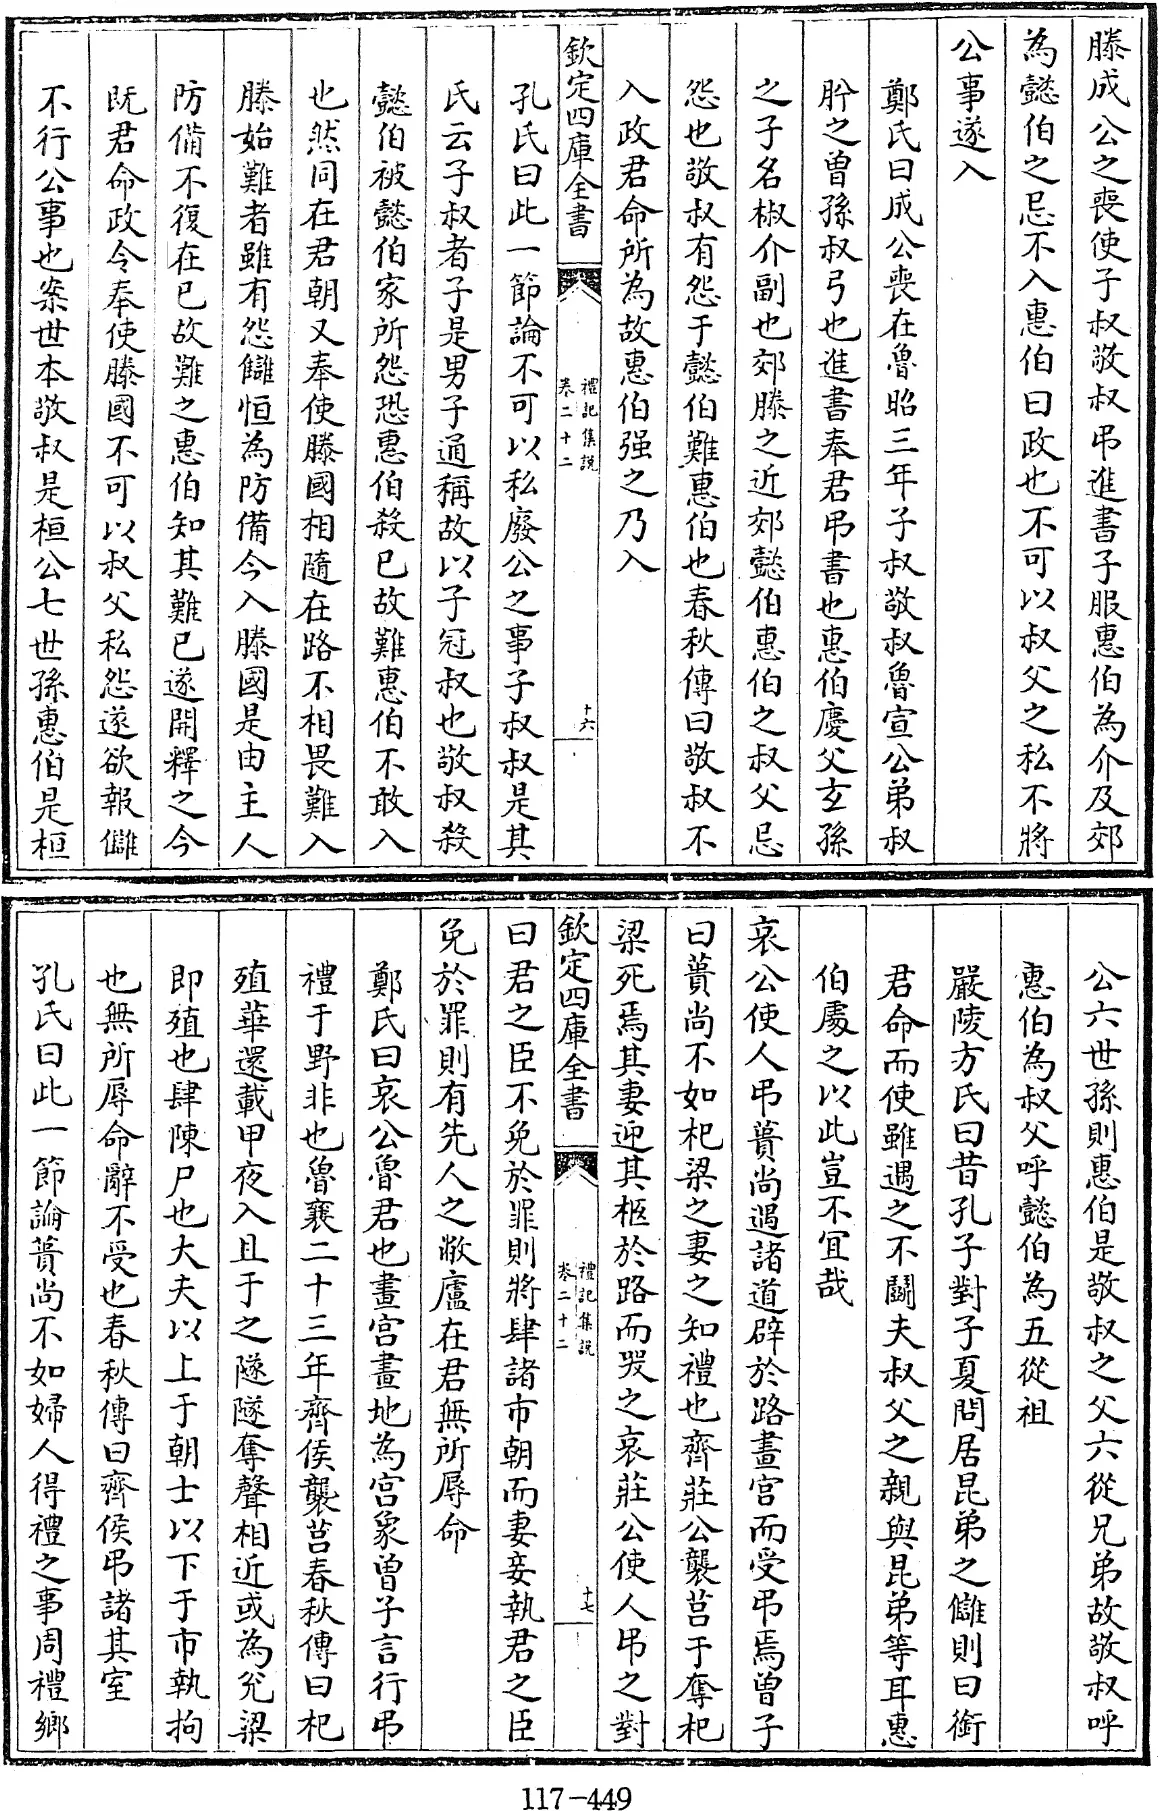 滕成公之喪使子叔敬叔弔進書子服惠伯為介及郊
為懿伯之忌不入惠伯曰政也不可以叔父之私不將
公事遂入
鄭氏曰成公喪在魯昭三年子叔敬叔魯宣公弟叔
肸之曽孫叔弓也進書奉君弔書也惠伯慶父玄孫
之子名椒介副也郊滕之近郊懿伯惠伯之叔父忌
怨也敬叔有怨于懿伯難惠伯也春秋傳曰敬叔不
入政君命所為故惠伯强之乃入
欽定四庫全書
禮記集說
卷二十二
十六
孔氏曰此一節論不可以私廢公之事子叔叔是其
氏云子叔者子是男子通稱故以子冠叔也敬叔殺
懿伯被懿伯家所怨恐惠伯殺已故難惠伯不敢入
也然同在君朝又奉使滕國相隨在路不相畏難入
滕始難者雖有怨讎恒為防備今入滕國是由主人
防備不復在已故難之惠伯知其難已遂開釋之今
既君命政令奉使滕國不可以叔父私怨遂欲報讎
不行公事也案世本敬叔是桓公七世孫惠伯是桓
公六世孫則惠伯是敬叔之父六從兄弟故敬叔呼
惠伯為叔父呼懿伯為五從祖
嚴陵方氏曰昔孔子對子夏問居昆弟之讎則曰銜
君命而使雖遇之不鬬夫叔父之親與昆弟等耳惠
伯處之以此豈不宜哉
哀公使人弔蕢尚遇諸道辟於路畫宮而受弔焉曽子
曰蕢尚不如杞梁之妻之知禮也齊莊公襲莒于奪杞
梁死焉其妻迎其柩於路而哭之哀莊公使人弔之對
欽定四庫全書
禮記集說
卷二十二
十七
曰君之臣不免於罪則將肆諸市朝而妻妾執君之臣
免於罪則有先人之敝廬在君無所辱命
鄭氏曰哀公魯君也畫宮畫地為宮象曽子言行弔
禮于野非也魯襄二十三年齊侯襲莒春秋傳曰杞
殖華還載甲夜入且于之隧隧奪聲相近或為兊梁
即殖也肆陳尸也大夫以上于朝士以下于市執拘
也無所辱命辭不受也春秋傳曰齊侯弔諸其室
孔氏曰此一節論蕢尚不如婦人得禮之事周禮鄉
117-449